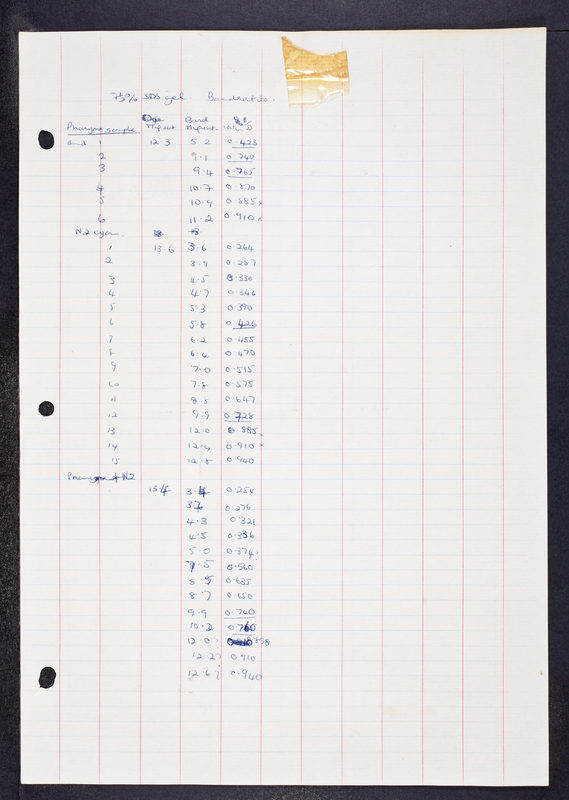 7½% SDS gel. Bandratios.
Dye Band
Pharynx sample Migrat Migrat. D
Band 1 12.3 5.2 0.423
2 9.1 0.740
3 9.4 0.765
4 10.7 0.870
5 10.9 0.885 x
6 11.2 0.910 x
N.2
1 13.6 3.6 0.264
2 3.9 0.287
3 4.5 0.330
4 4.7 0.346
5 5.3 0.390
6 5.8 0.426
7 6.2 0.455
8 6.4 0.470
9 7.0 0.515
10 7.8 0.575
11 8.8 0.647
12 9.9 0.728
13 12.0 0.885
14 12.4 0.910
15 12.8 0.940
Pharynx + N2
13.4 3.4 0.254
3.7 0.276
4.3 0.321
4.5 0.336
5.0 0.374
7.5 0.560
8.5 0.635
8.7 0.650
9.9 0.740
10.2 0.760
12.0? 898
12.2? 0.910
12.6? 0.940